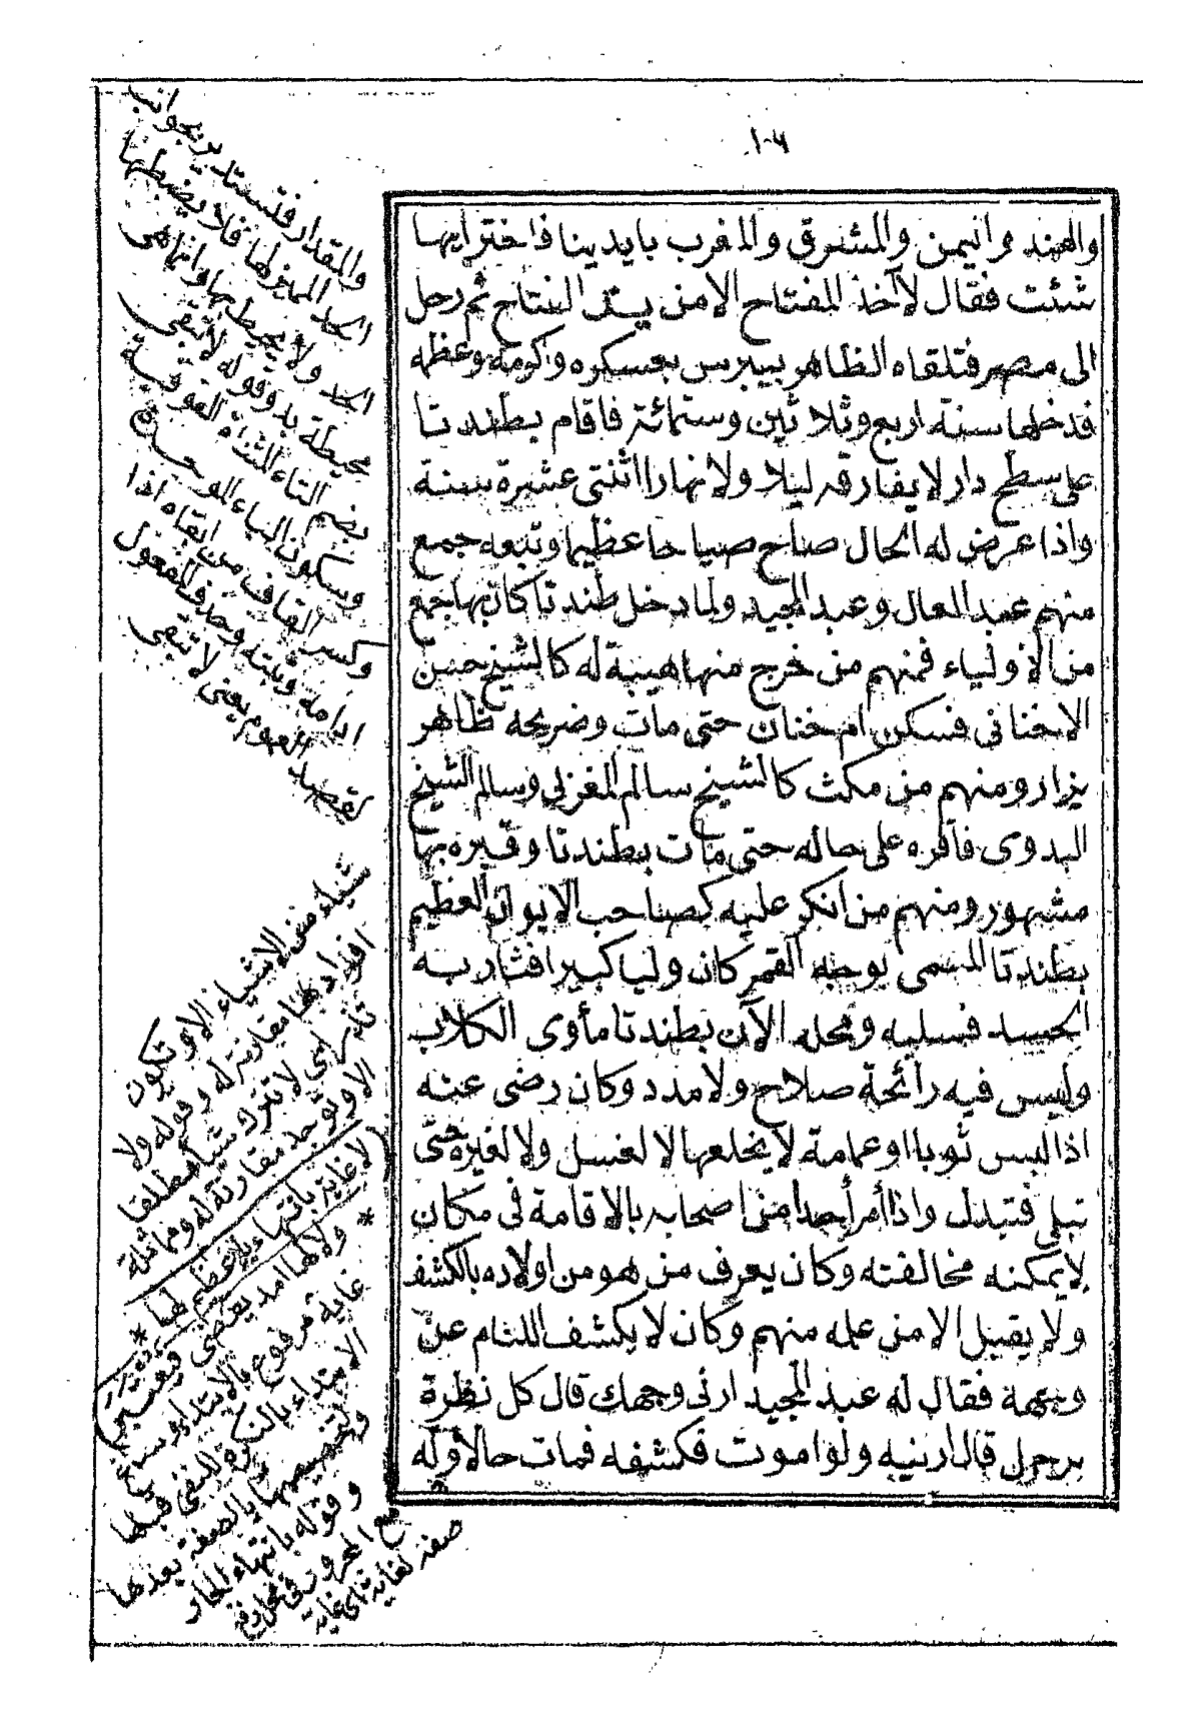 ١٠٦
والهند واليمن والمشرق والمغرب بايدينا فاختر ايها
شئت فقال لا آخذ المفتاح الا من يد الفتاح ثم رحل
الى مصر فتلقاه الظاهر بيبرس بعسكره واكرمه وعظمه
فدخلها سنة اربع وثلاثين وستمائة فاقام بطندتا
على سطح دار لا يفارقه ليلا ولا نهارا اثنتى عشرة سنة
واذا عرض له الحال صاح صياحا عظيما وتبعه جمع
منهم عبد العال وعبد المجيد ولما دخل طندتا كان بها جمع
من الاولياء فمنهم من خرج منها هيبة له كالشيخ حسن
الاخنائى فسكن ام خنان حتى مات وضريحه ظاهر
يزار ومنهم من مكث كالشيخ سالم المغربى وسالم الشيخ
البدوى فاقره على حاله حتى مات بطندتا وقبره بها
مشهور ومنهم من انكر عليه كصاحب الايوان العظيم
بطندتا المسمى بوجه القمر كان وليا كبيرا فثار به
الحسد فسلبه ومحله الآن بطندتا مأوى الكلاب
وليس فيه رائحة صلاح ولا مدد وكان رضى عنه
اذا لبس ثوبا او عمامة لا يخلعها لا لغسل ولا لغيره حتى
تبلى فتبدل واذا أمر أحدا من اصحابه بالاقامة فى مكان
لا يمكنه مخالفته وكان يعرف من هو من اولاده بالكشف
ولا يقبل الا من علمه منهم وكان لا يكشف اللثام عن
وجهه فقال له عبد المجيد ارنى وجهك قال كل نظرة
برجل قال ارنيه ولو اموت فكشفه فمات حالا وله
والمقدار فتستدير بجوانب
الحد المميز لها فلا يضبطها
الحد ولا يحيط بها وانما هى
محيطة به وقوله لا تبقى
بضم التاء المثناة الفوقية
وسكون الباء الموحدة
وكسر القاف من ابقاه اذا
ادامه وثبته وحذف المفعول
لقصد العموم يعنى لا تبقى
شياء من الاشياء الا وتكون
افرادها مقارنة له وقوله ولا
تذر اى لا تترك شيأ مطلقا
الا وتوجد مقارنة له ومماثلة
لا غاية بانتهاء يا عظيم لها *
* ولا لها امد يقضى فيعتبر
غاية مرفوع بالابتداء وساغ
الابتداء بالنكرة للنفى قبلها
وتخصيصها بالصفة بعدها
وقوله بانتهاء الجار
مع المجرور فى محل رفع
صفة لغاية اى غاية